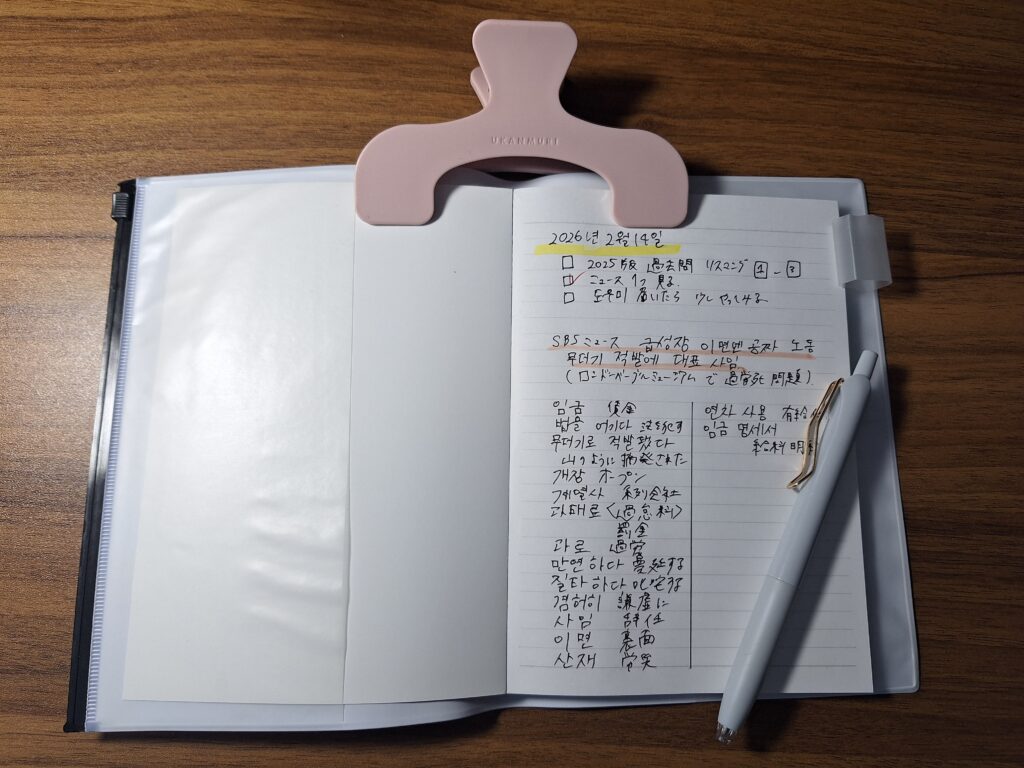 UKANMURI
2026年2月14日
□ 2025版 過去問 リスニング 1-3
□ ニュース1つ見る
□ 届いたら
SBSニュース 급성장 이면엔 공짜 노동
무더기 적발에 대표 사임
(ロンドンベーグルミュージアムで過労死問題)
임금 賃金
법을 어기다 法を犯す
무더기로 적발됐다
山のように摘発された
개장 オープン
계열사 系列会社
과태료〈過怠料〉
罰金
과로 過労
만연하다 蔓延する
질타하다 叱咤する
겸허히 謙虚に
사임 辞任
이면 裏面
산재 労災
연차 사용 有給
임금 명세서
給料明